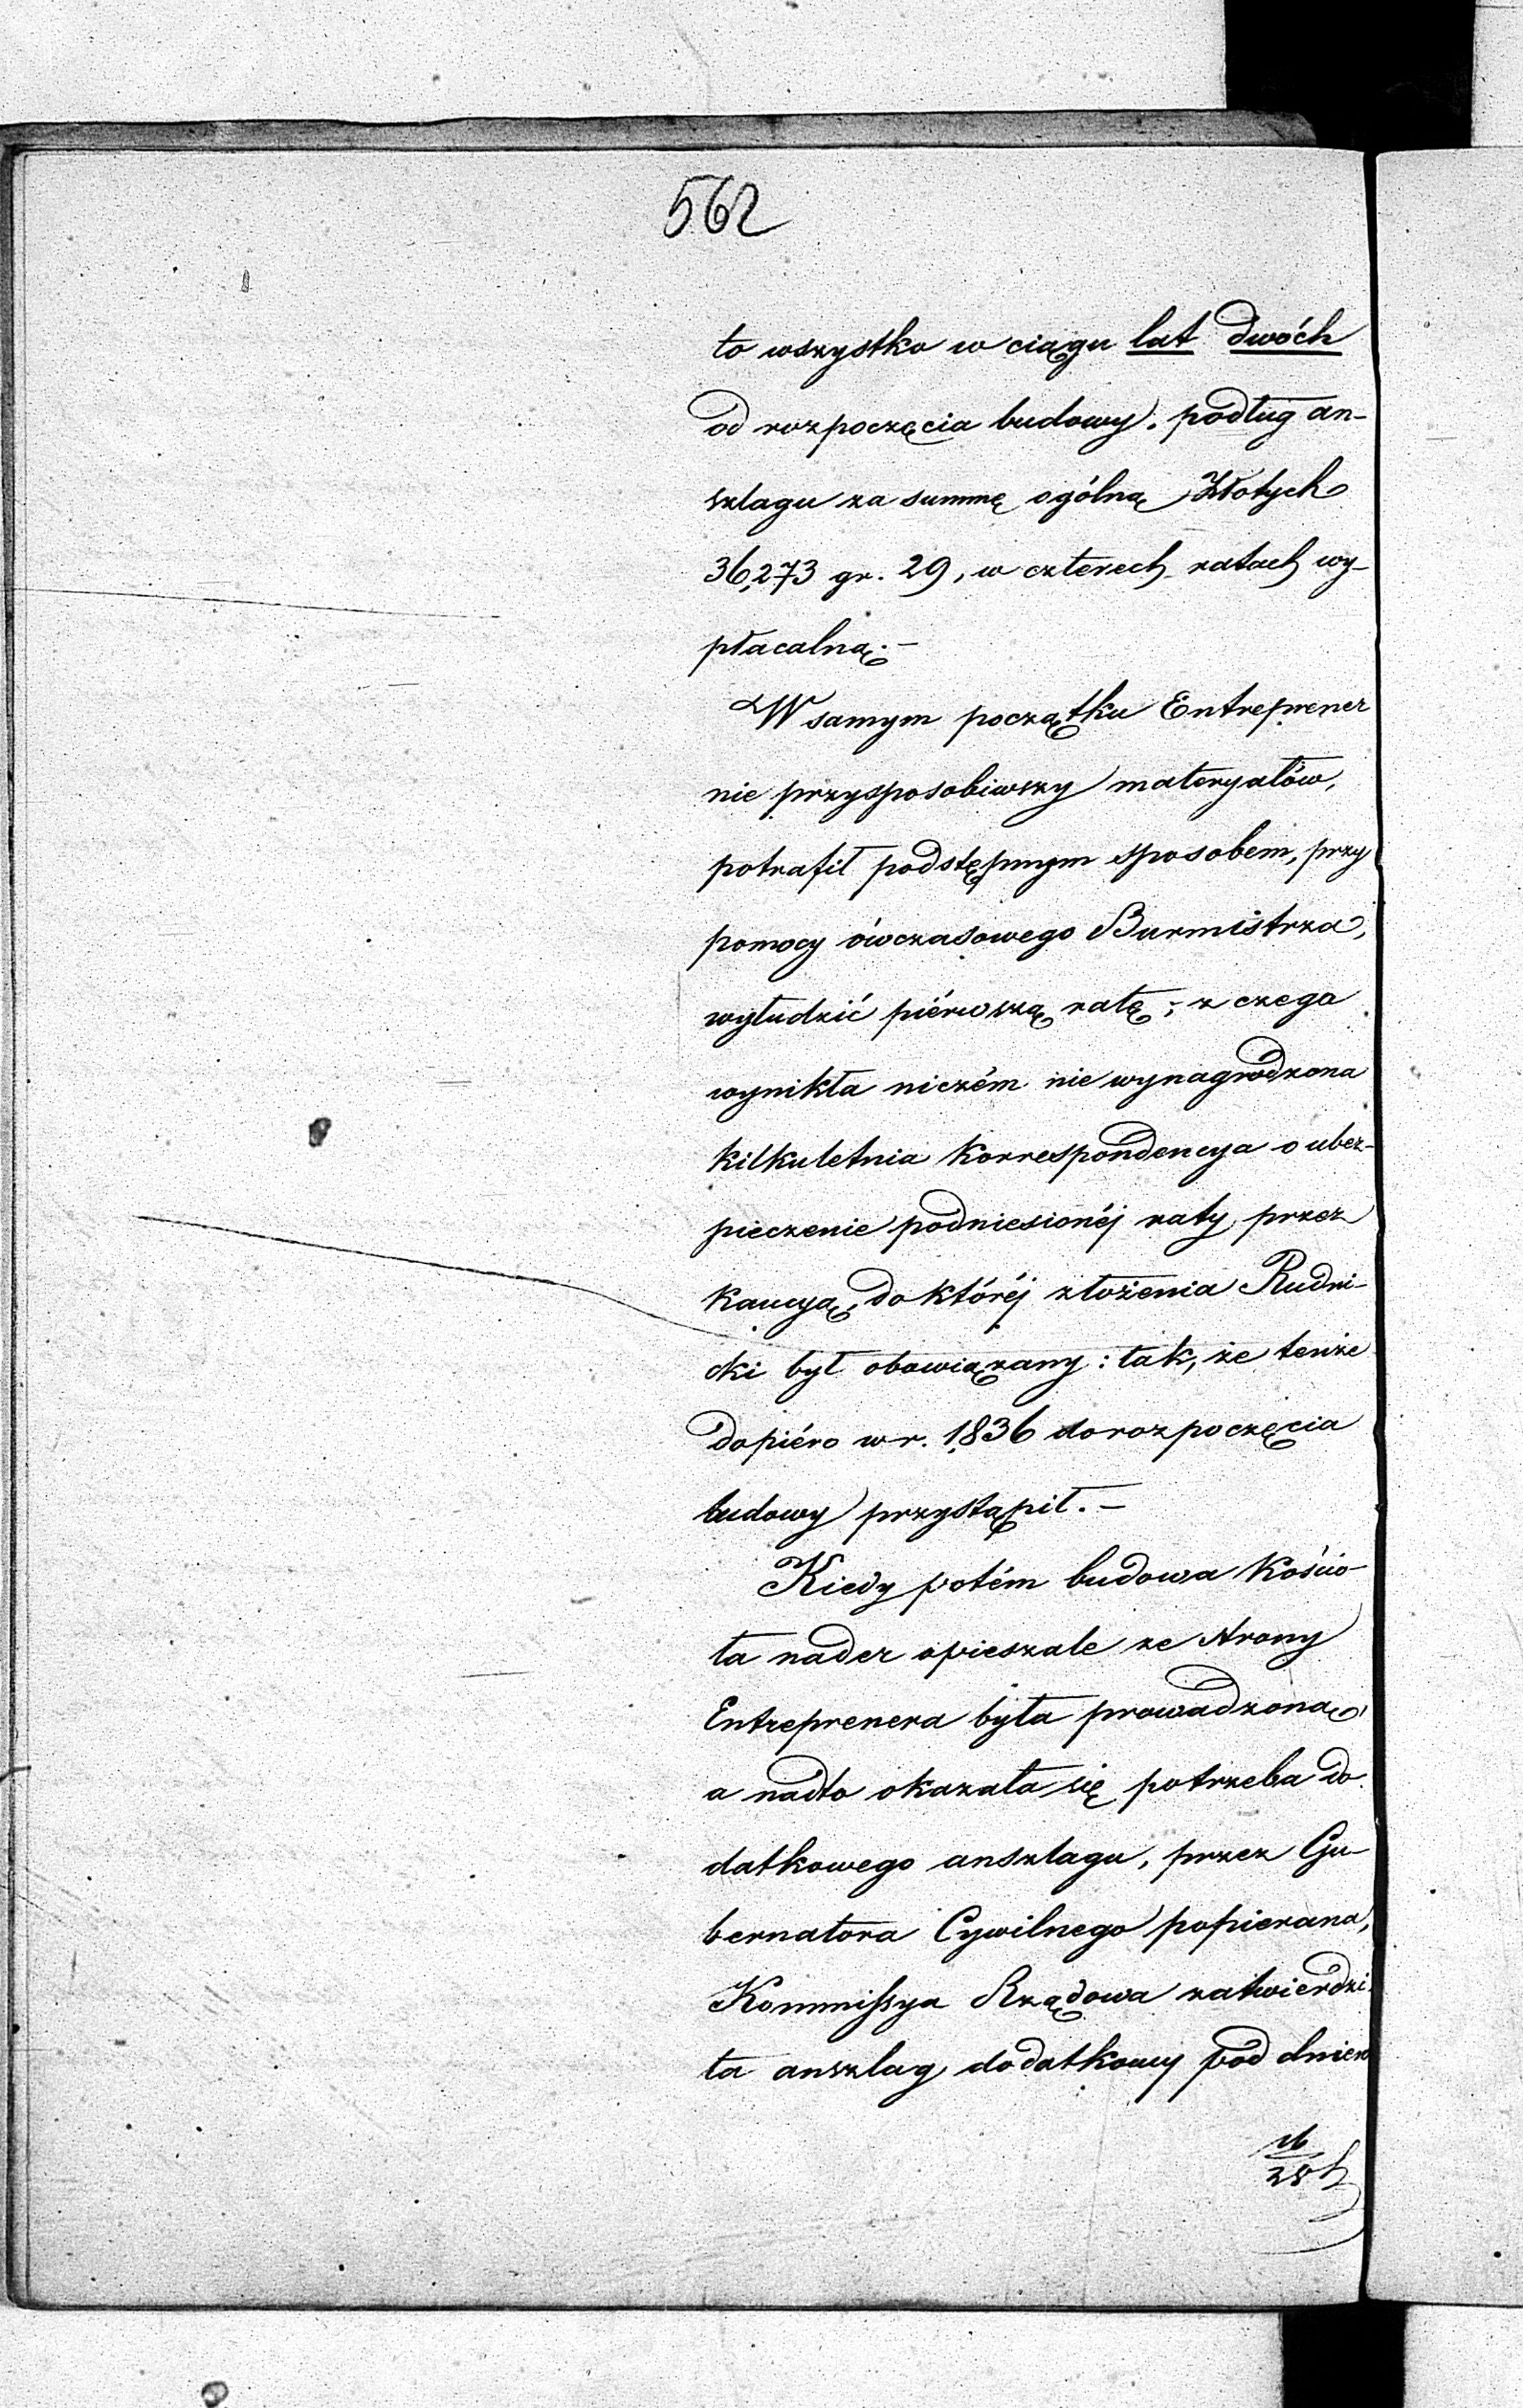 562
to wszystko w ciągu lat dwóch
od rozpoczęcia budowy, podług an-
szlagu za summę ogólną Złotych
36,273 gr. 29, w czterech ratach wy-
płacalną.–
W samym początku Entreprener
nie przysposobiwszy materyałów,
potrafił podstępnym sposobem, przy
pomocy ówczasowego Burmistrza,
wyłudzić piérwszą ratę; z czego
wynikła niczém nie wynagrodzona
kilkuletnia korrespondencya o ubez-
pieczenie podniesionéj raty, przez
kaucyą, do któréj złożenia Rudni-
cki był obowiązany: tak, że tenże
dopiéro w r. 1836 do rozpoczęcia
budowy przystąpił.–
Kiedy potém budowa kościo-
ła nader opieszale ze strony
Entreprenera była prowadzoną,
a nadto okazała się potrzeba do-
datkowego anszlagu, przez Gu-
bernatora Cywilnego popierana,
Kommissya Rządowa zatwierdzi-
ła anszlag dodatkowy pod dniem